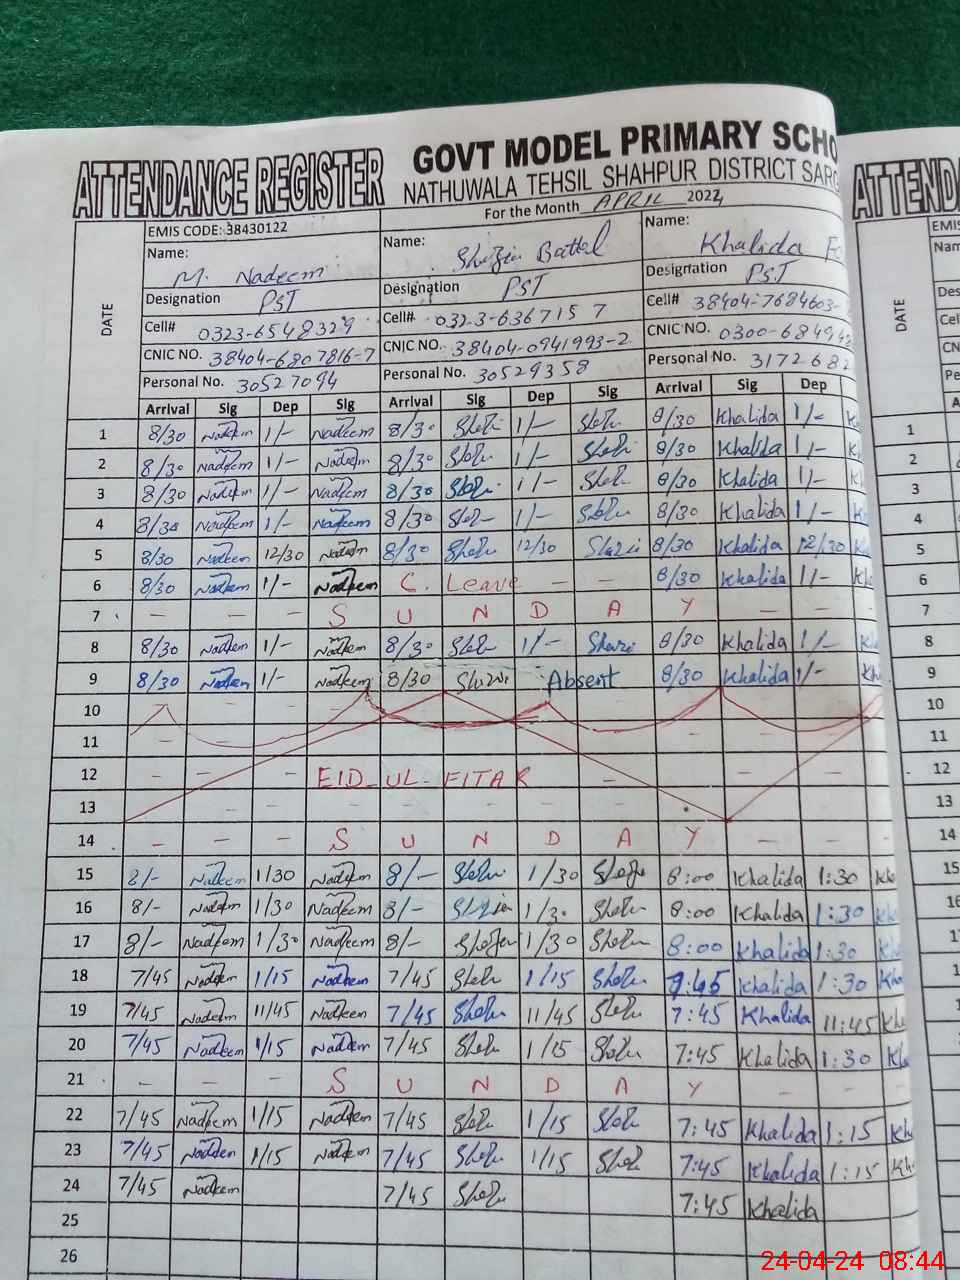 ATTENDANCE REGISTER GOVT MODEL PRIMARY SCHO ATTENDA
NATHUWALA TEHSIL SHAHPUR DISTRICT SARG
For the Month APRIL 2024
EMIS CODE: 38430122 EMIS
Name: M. Nadeem Name: Battol Name: Khalida
Designation PST Designation PST Designation PST
Cell# 0323-6548329 Cell# 0323-6367157 Cell# 38404-7684603-
CNIC NO. 38404-6807816-7 CNIC NO. 38404-0941993-2 CNIC NO. 0300-68494
Personal No. 30527094 Personal No. 30529358 Personal No. 317268
DATE Arrival Sig Dep Sig Arrival Sig Dep Sig Arrival Sig Dep DATE
1 8/30 Nadeem 1/- Nadeem 8/30 1/- 8/30 Khalida 1/- 1
2 8/30 Nadeem 1/- Nadeem 8/30 1/- 8/30 Khalida 1/- 2
3 8/30 Nadeem 1/- Nadeem 8/30 1/- 8/30 Khalida 1/- 3
4 8/30 Nadeem 1/- Nadeem 8/30 1/- 8/30 Khalida 1/- 4
5 8/30 Nadeem 12/30 Nadeem 8/30 12/30 8/30 Khalida 12/30 5
6 8/30 Nadeem 1/- Nadeem C. Leave - - 8/30 Khalida 1/- 6
7 - - - S U N D A Y - - 7
8 8/30 Nadeem 1/- Nadeem 8/30 1/- 8/30 Khalida 1/- 8
9 8/30 Nadeem 1/- Nadeem 8/30 Absent 8/30 Khalida 1/- 9
10 10
11 11
12 EID_UL_FITAR 12
13 13
14 - - - S U N D A Y - - 14
15 8/- Nadeem 1/30 Nadeem 8/- 1/30 8:00 Khalida 1:30 15
16 8/- Nadeem 1/30 Nadeem 8/- 1/30 8:00 Khalida 1:30 16
17 8/- Nadeem 1/30 Nadeem 8/- 1/30 8:00 Khalida 1:30
18 7/45 Nadeem 1/15 Nadeem 7/45 1/15 7:45 Khalida 1:30
19 7/45 Nadeem 11/45 Nadeem 7/45 11/45 7:45 Khalida 11:45
20 7/45 Nadeem 1/15 Nadeem 7/45 1/15 7:45 Khalida 1:30
21 - - - S U N D A Y - -
22 7/45 Nadeem 1/15 Nadeem 7/45 1/15 7:45 Khalida 1:15
23 7/45 Nadeem 1/15 Nadeem 7/45 1/15 7:45 Khalida 1:15
24 7/45 Nadeem 7/45 7:45 Khalida
25
26
24-04-24 08:44